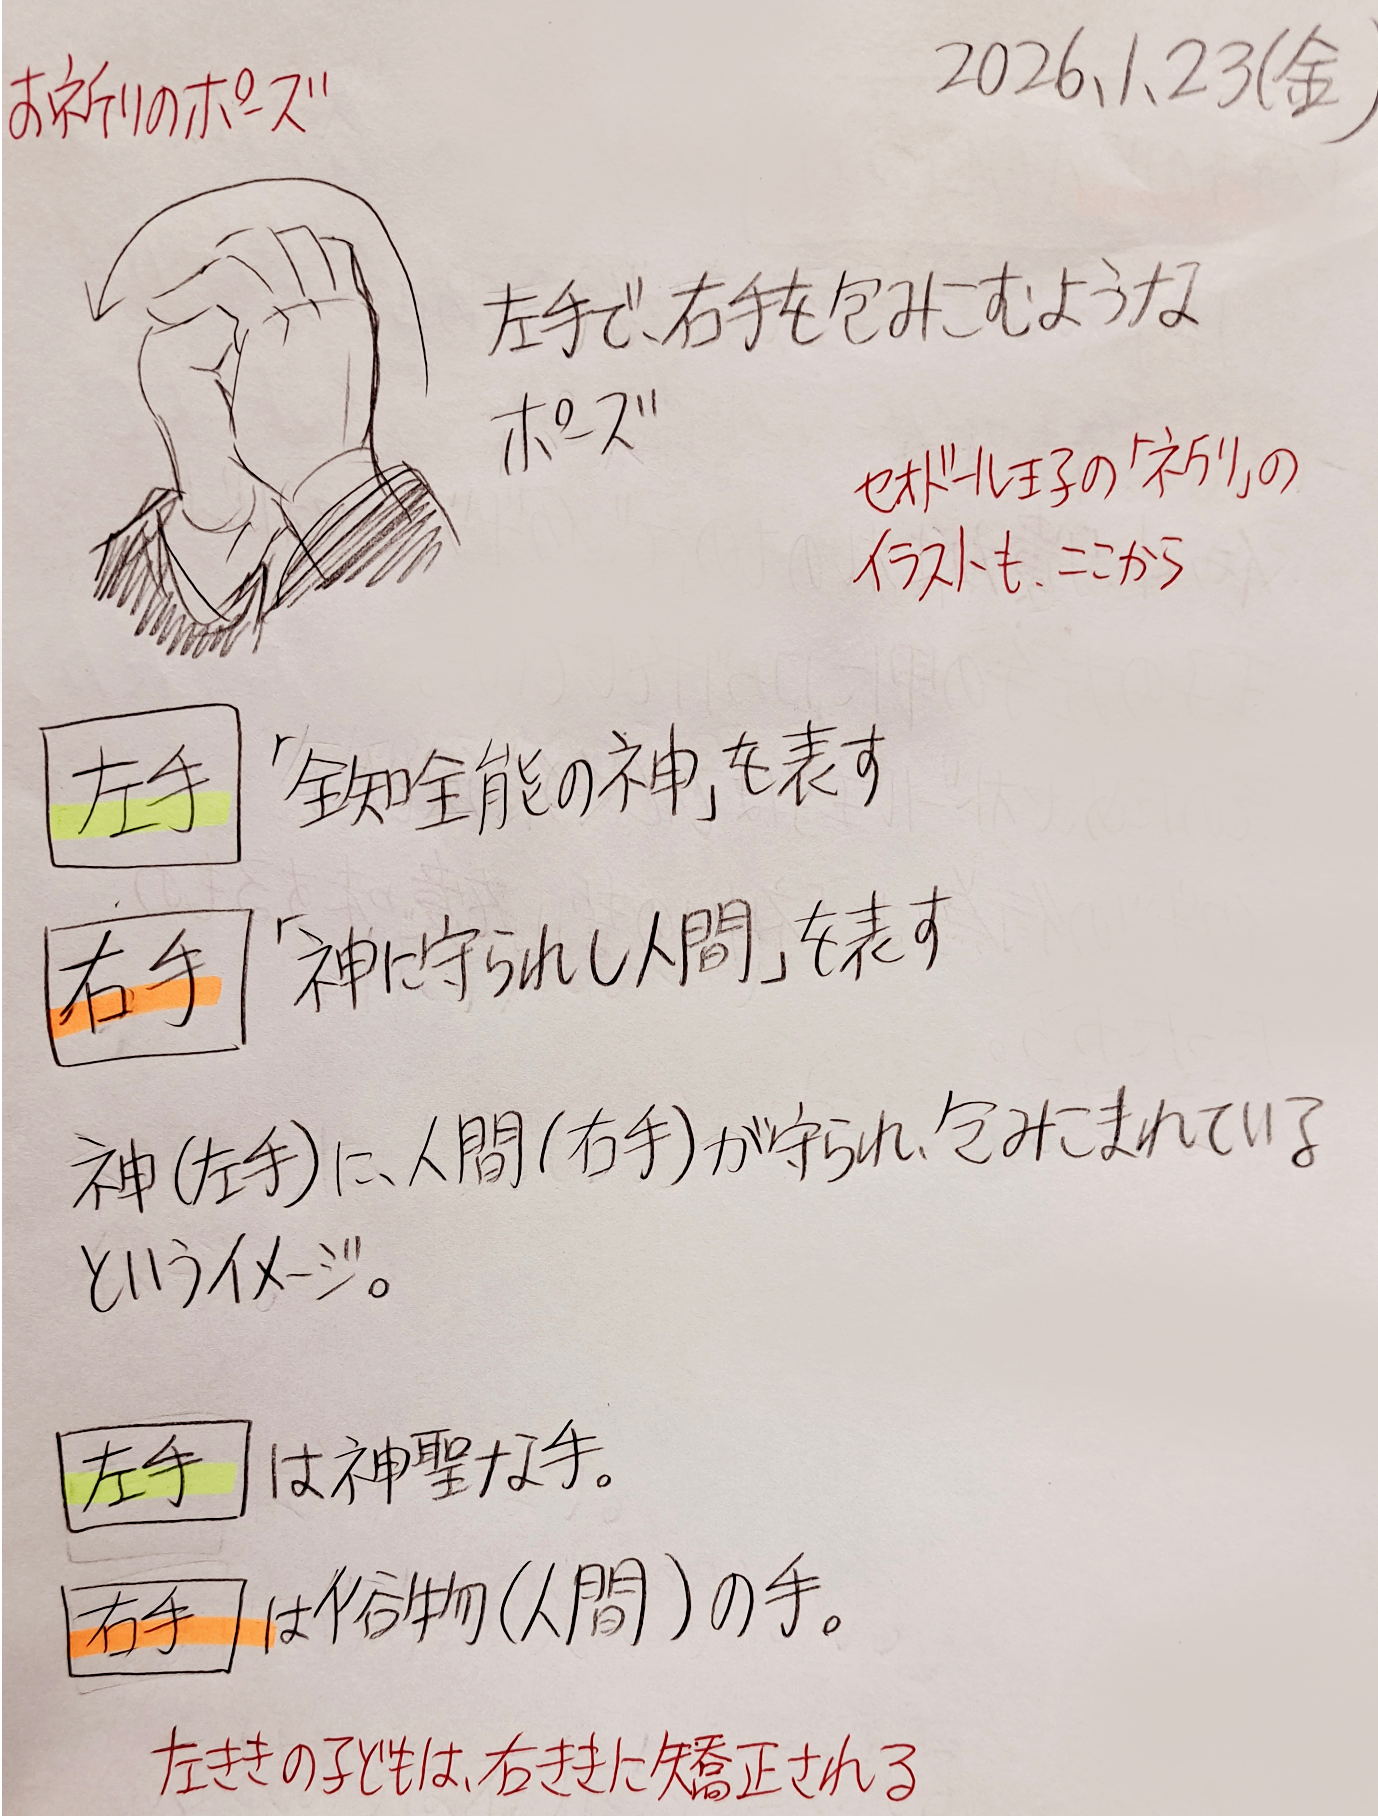 2026.1.23(金)
お祈りのポーズ
左手で、右手を包みこむような
ポーズ
セオドール王子の「祈り」の
イラストも、ここから
左手 「全知全能の神」を表す
右手 「神に守られし人間」を表す
神(左手)に、人間(右手)が守られ、包みこまれている
というイメージ。
左手 は神聖な手。
右手 は俗物(人間)の手。
左ききの子どもは、右ききに矯正される